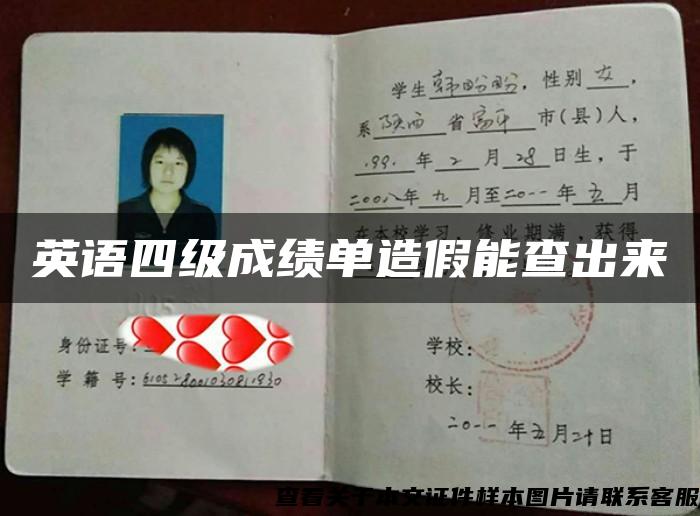 学生韩盼盼，性别女，
系陕西省富平市(县)人，
1991年2月28日生，于
二00八年九月至二0一一年五月
在本校学习，修业期满，获得
英语四级成绩单造假能查出来
身份证号：
学籍号：610528001030811930
学校：
校长：
二0一一年五月二十日
查看关于本文证件样本图片请联系客服